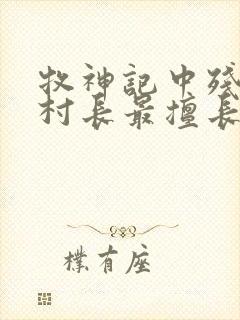 牧神記中殘
村長最擅長
樸有座